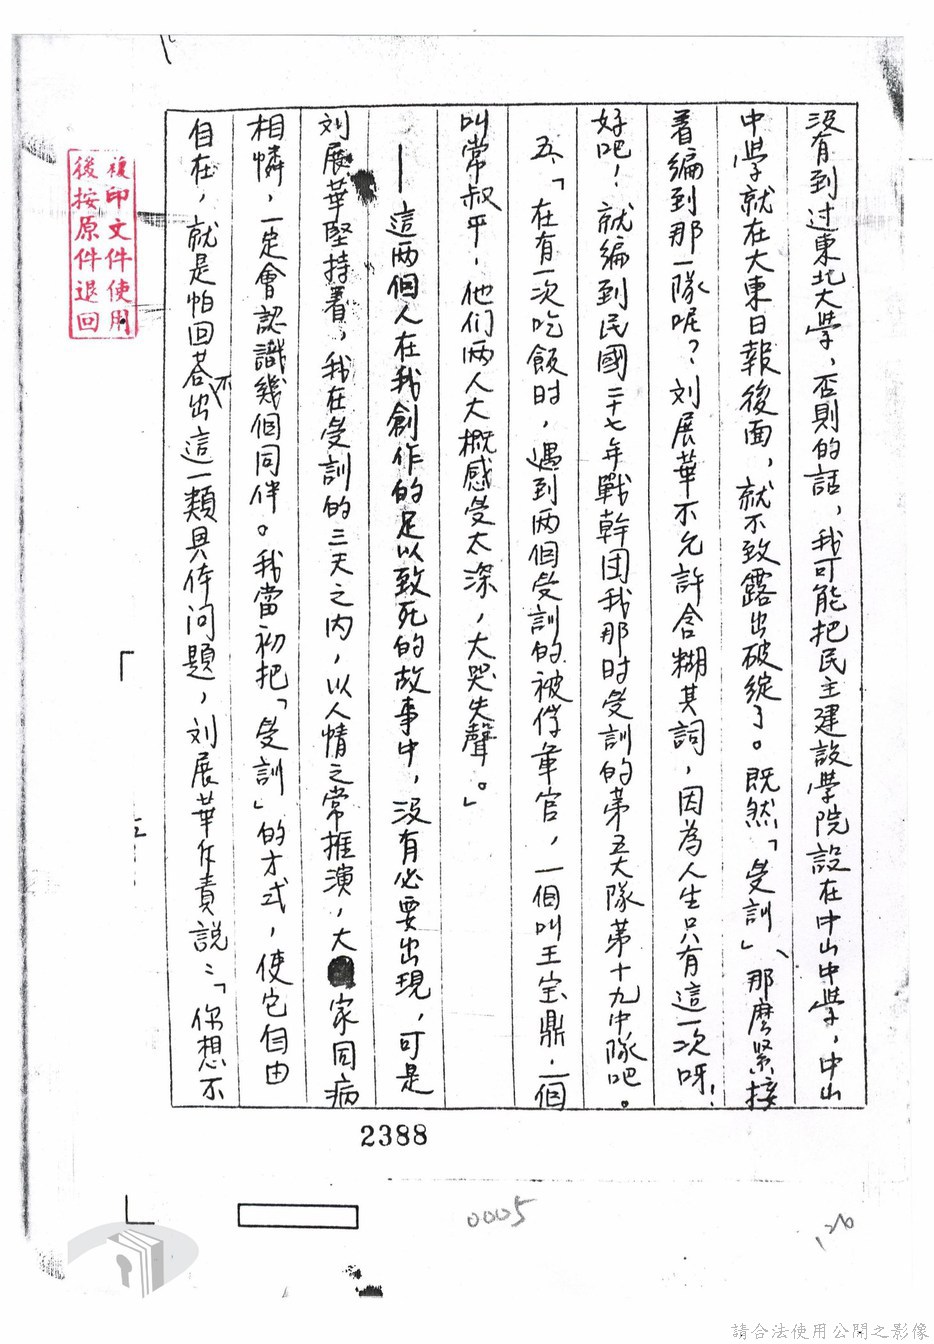 沒有到过東北大學，否則的話，我可能把民主建設學院設在中山中學，中山
中學就在大東日報後面，就不致露出破綻了。既然「受訓」、那麽緊接
着編到那一隊呢？刘展華不允許含糊其詞，因為人生只有這一次呀！
好吧！就編到民國三十七年戰幹团我那时受訓的第五大隊第十九中隊吧。
五、「在有一次吃飯时，遇到两個受訓的被俘軍官，一個叫王宝鼎，一個
叫常叔平，他们两人大概感受太深，大哭失聲。」
—這两個人在我創作的足以致死的故事中，沒有必要出現，可是
刘展華堅持着，我在受訓的三天之内，以人情之常推演，大家同病
相憐，一定會認識幾個同伴。我當初把「受訓」的方式，使它自由
自在，就是怕回荅不出這一類具体问題，刘展華斥責説：「你想不
複印文件使用
後按原件退回
2388
0005
請合法使用公開之影像